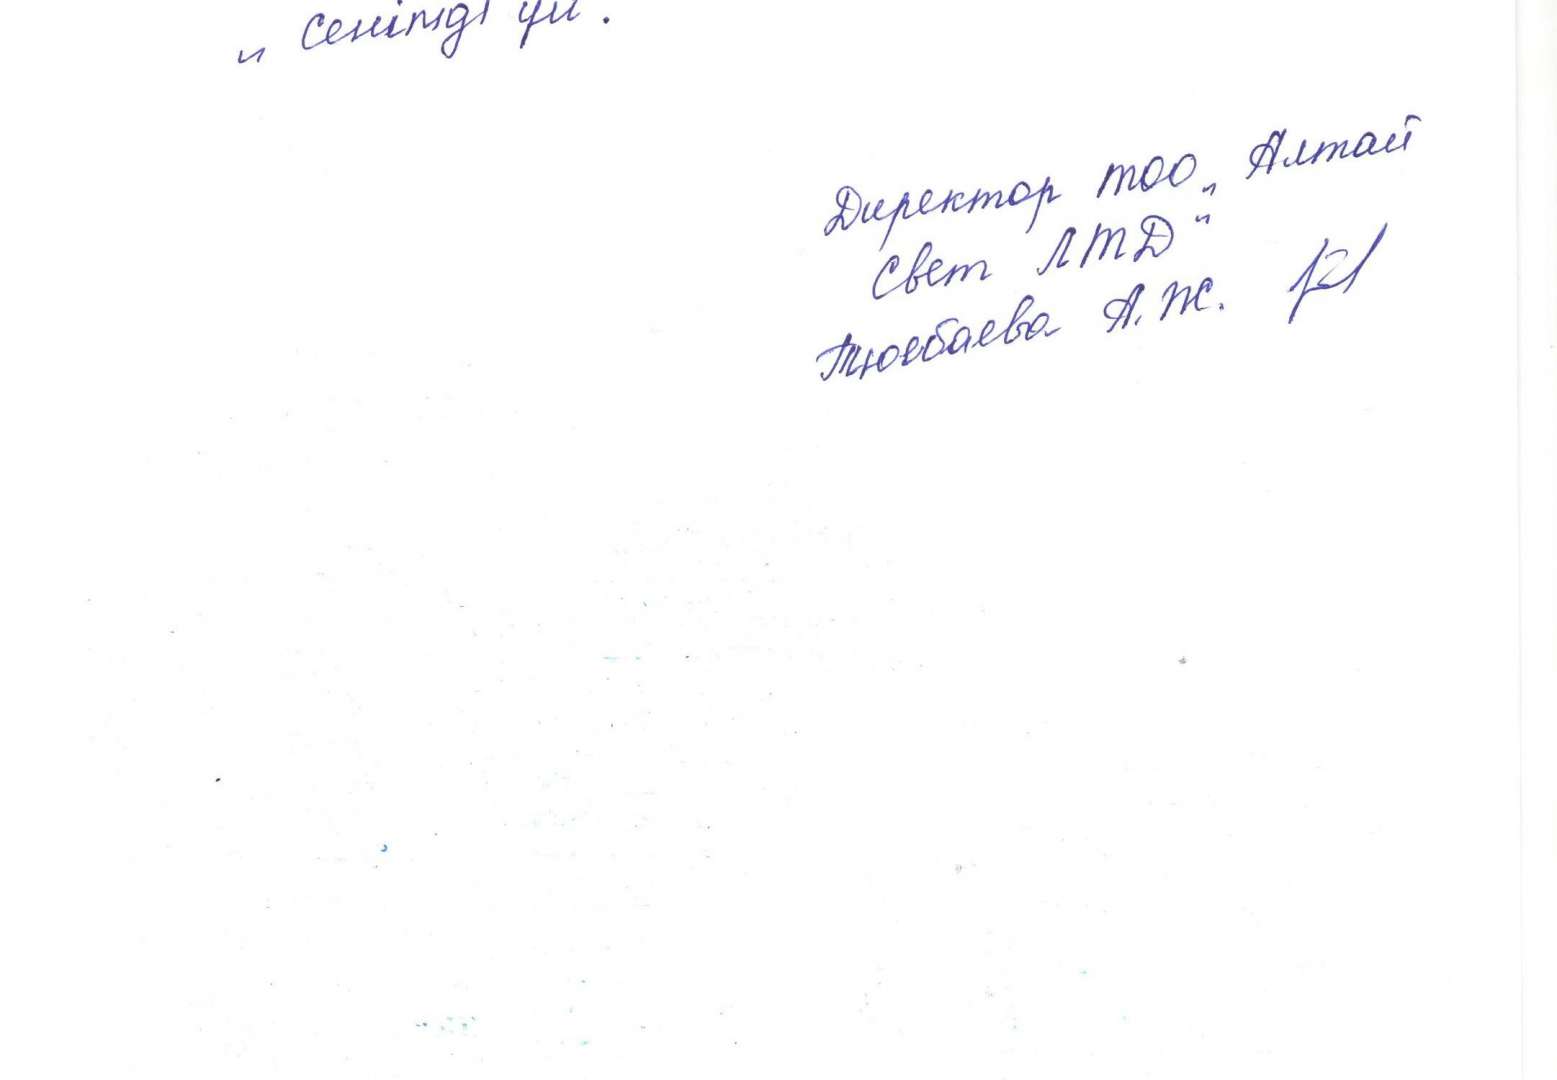 „ Сенімді үй.
Директор ТОО „ Алтай
Свет ЛТД"
Тюебаева А.Ж.